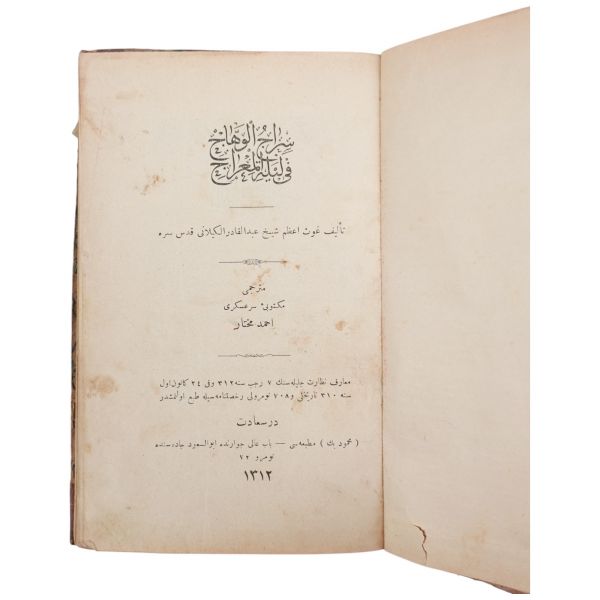 سِرَاجُ الوَهَّاجْ
فِى لَيْلَةِ المِعْرَاجْ
تأليف غوث اعظم شيخ عبدالقادر الكيلانى قدس سره
مترجمى
مكتوبئ سرعسكرى
احمد مختار
معارف نظارت جليله سنك ٧ رجب سنه ٣١٢ وفى ٢٤ كانون اول
سنه ٣١٠ تاريخلى و ٧٠٨ نومرولى رخصتنامه سيله طبع اولنمشدر
در سعادت
( محمود بك ) مطبعه سى — باب عالى جوارنده ابوالسعود جاده سنده
نومرو ٧٢
١٣١٢